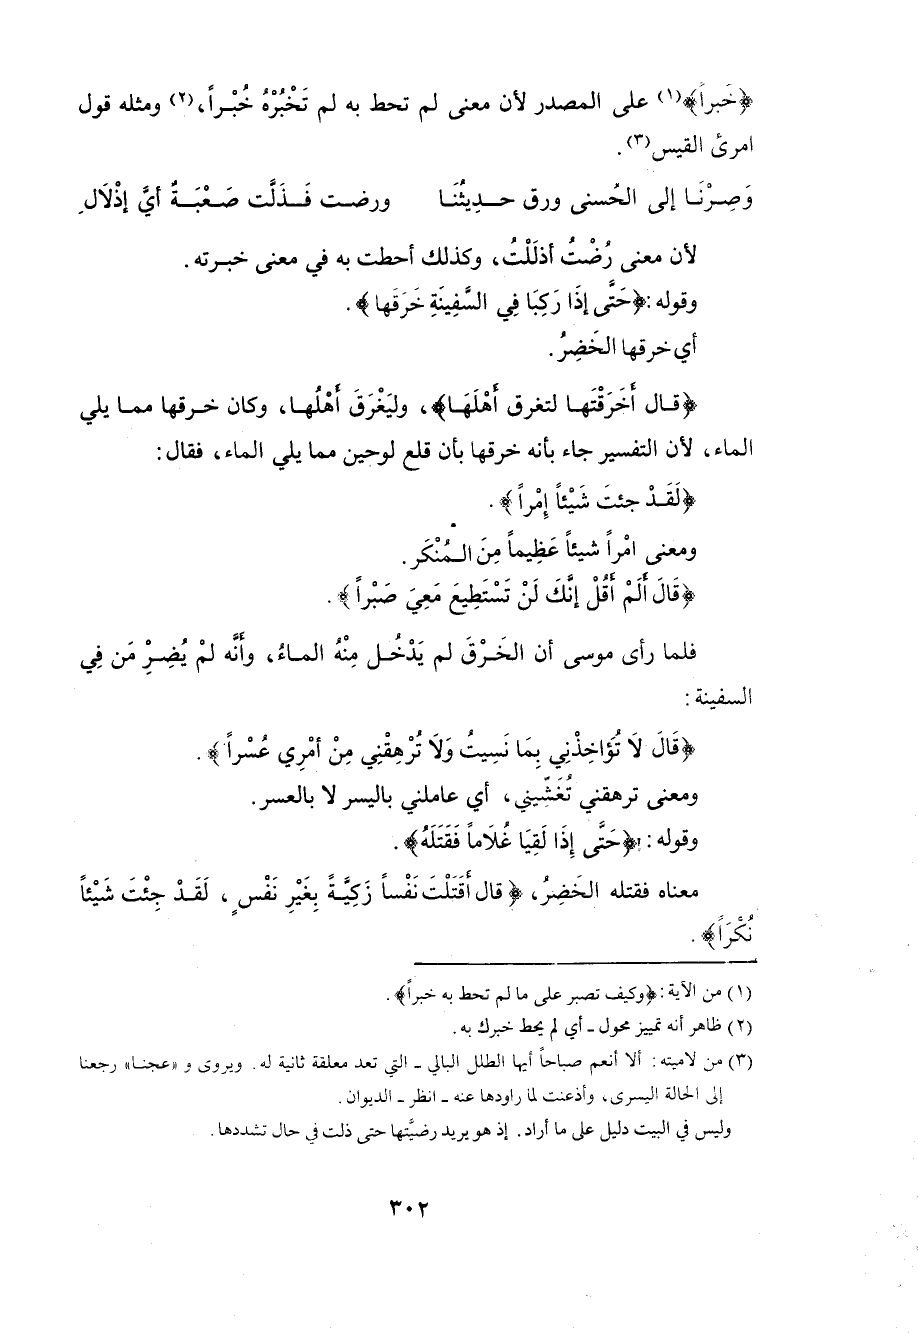 ﴿خَبراً﴾(١) على المصدر لأن معنى لم تحط به لم تَخْبُرْهُ خُبْراً،(٢) ومثله قول
امرئ القيس(٣).
وَصِرْنَا إلى الحُسنى ورق حديثُنَا ورضت فَذَلَّت صَعْبَةٌ أيَّ إذْلَالِ
لأن معنى رُضْتُ أذلَلْتُ، وكذلك أحطت به في معنى خبرته.
وقوله:﴿حَتَّى إذَا رَكِبَا فِي السَّفِينَةِ خَرَقَها﴾.
أي خرقها الخَضِرُ.
﴿قال أَخَرَقْتَها لتغرق أَهْلَهَا﴾، وليَغْرَقَ أَهْلُها، وكان خرقها مما يلي
الماء، لأن التفسير جاء بأنه خرقها بأن قلع لوحين مما يلي الماء، فقال:
﴿لَقَدْ جئتَ شَيْئاً إمْراً﴾.
ومعنى امْراً شيئاً عَظِيماً مِنَ المُنْكَر.
﴿قَالَ أَلَمْ أَقُلْ إنَّكَ لَنْ تَسْتَطِيعَ مَعِيَ صَبْراً﴾.
فلما رأى موسى أن الخَرْقَ لم يَدْخُل مِنْهُ الماءُ، وأَنَّه لَمْ يُضِرْ مَن فِي
السفينة:
﴿قَالَ لَا تُؤَاخِذْنِي بِمَا نَسِيتُ وَلَا تُرْهِقْنِي مِنْ أمْرِي عُسْراً﴾.
ومعنى ترهقني تُغَشّيني، أي عاملني باليسر لا بالعسر.
وقوله: ﴿حَتَّى إِذَا لَقِيَا غُلَاماً فَقَتَلَهُ﴾.
معناه فقتله الخَضِرُ، ﴿قال أَقَتَلْتَ نَفْساً زَكِيَّةً بِغَيْرِ نَفْسٍ، لَقَدْ جِئْتَ شَيْئاً
نُكْرَاً﴾.
(١) من الآية:﴿وكيف تصبر على ما لم تحط به خبراً﴾.
(٢) ظاهر أنه تمييز محول ـ أي لم يحط خبرك به.
(٣) من لاميته: ألا أنعم صباحاً أيها الطلل البالي ـ التي تعد معلقة ثانية له. ويروى و «عجنا» رجعنا
إلى الحالة اليسرى، وأذعنت لما راودها عنه ـ انظر ـ الديوان.
وليس في البيت دليل على ما أراد. إذ هو يريد رضيَّتها حتى ذلت في حال تشددها.
٣٠٢